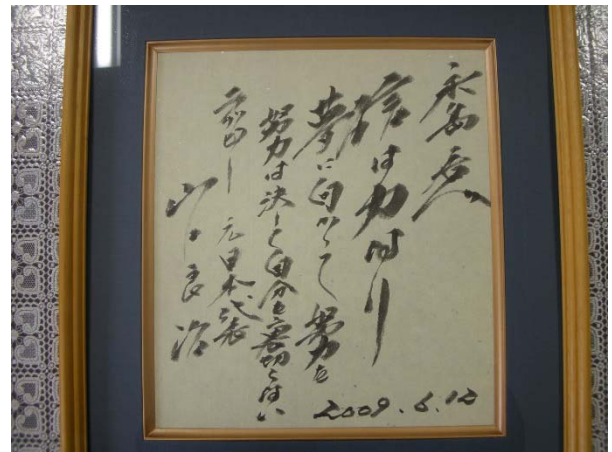 信は力なり
夢に向かって努力を
努力は決して自分を裏切らない
ラグビー 元日本代表
山口良治
2009.6.12